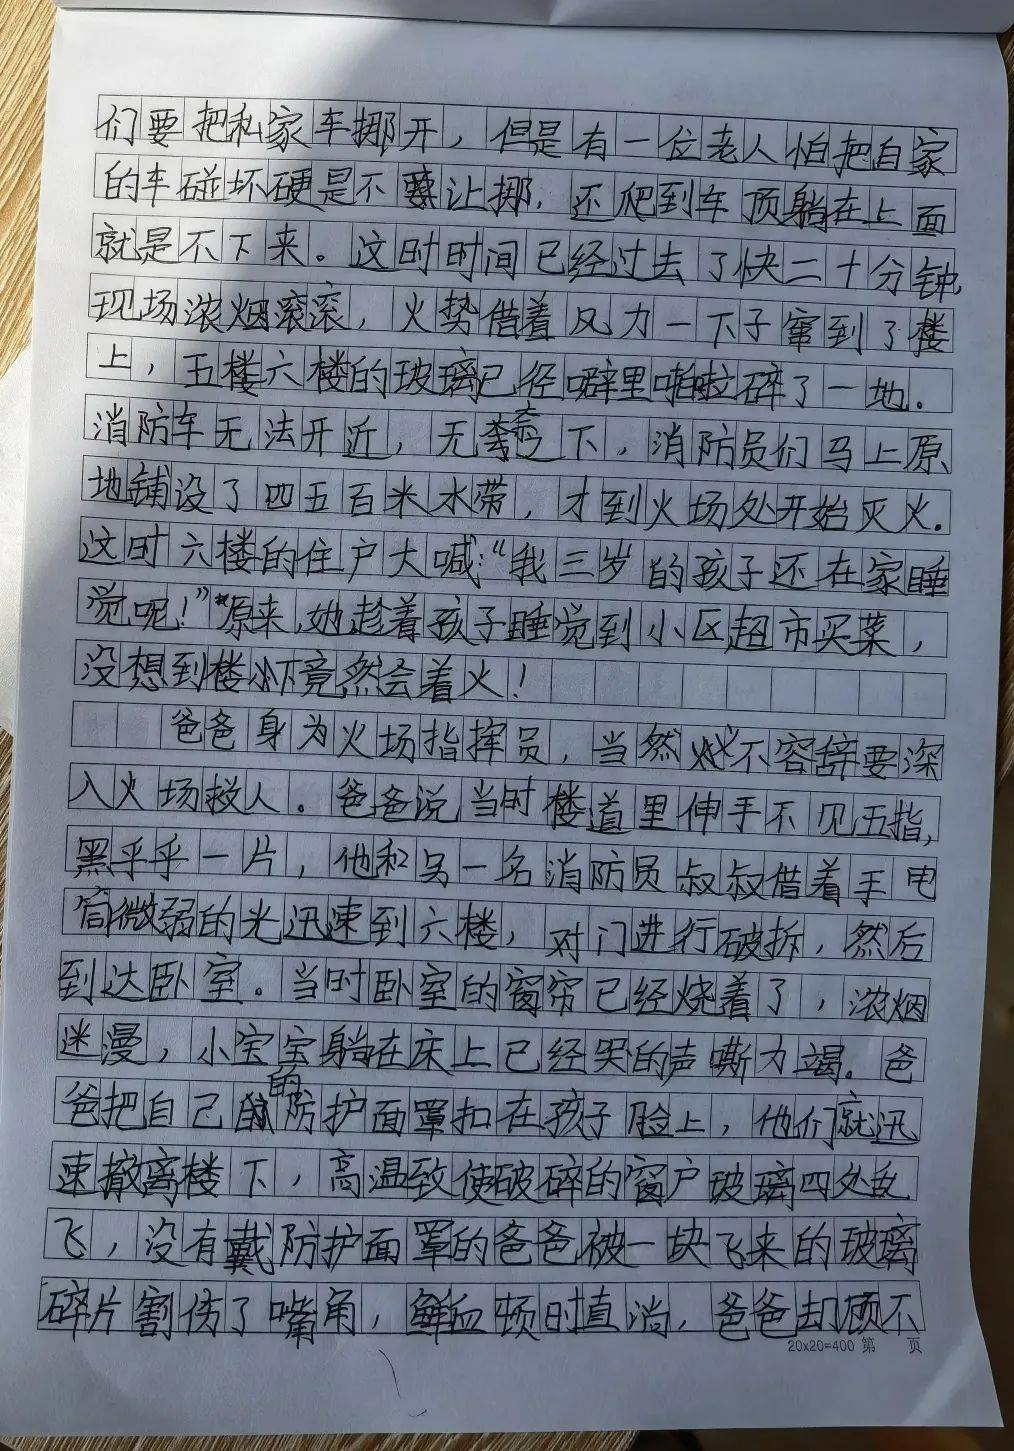 们要把私家车挪开，但是有一位老人怕把自家
的车碰坏硬是不让挪，还爬到车顶躺在上面
就是不下来。这时时间已经过去了快二十分钟，
现场浓烟滚滚，火势借着风力一下子窜到了楼
上，五楼六楼的玻璃已经噼里啪啦碎了一地。
消防车无法开近，无奈之下，消防员们马上原
地铺设了四五百米水带，才到火场处开始灭火。
这时六楼的住户大喊：“我三岁的孩子还在家睡
觉呢！”原来，她趁着孩子睡觉到小区超市买菜，
没想到楼下竟然会着火！
爸爸身为火场指挥员，当然义不容辞要深
入火场救人。爸爸说当时楼道里伸手不见五指，
黑乎乎一片，他和另一名消防员叔叔借着手电
筒微弱的光迅速到六楼，对门进行破拆，然后
到达卧室。当时卧室的窗帘已经烧着了，浓烟
迷漫，小宝宝躺在床上已经哭的声嘶力竭。爸
爸把自己的防护面罩扣在孩子脸上，他们就迅
速撤离楼下，高温致使破碎的窗户玻璃四处乱
飞，没有戴防护面罩的爸爸被一块飞来的玻璃
碎片割伤了嘴角，鲜血顿时直淌，爸爸却顾不
20x20=400 第 页